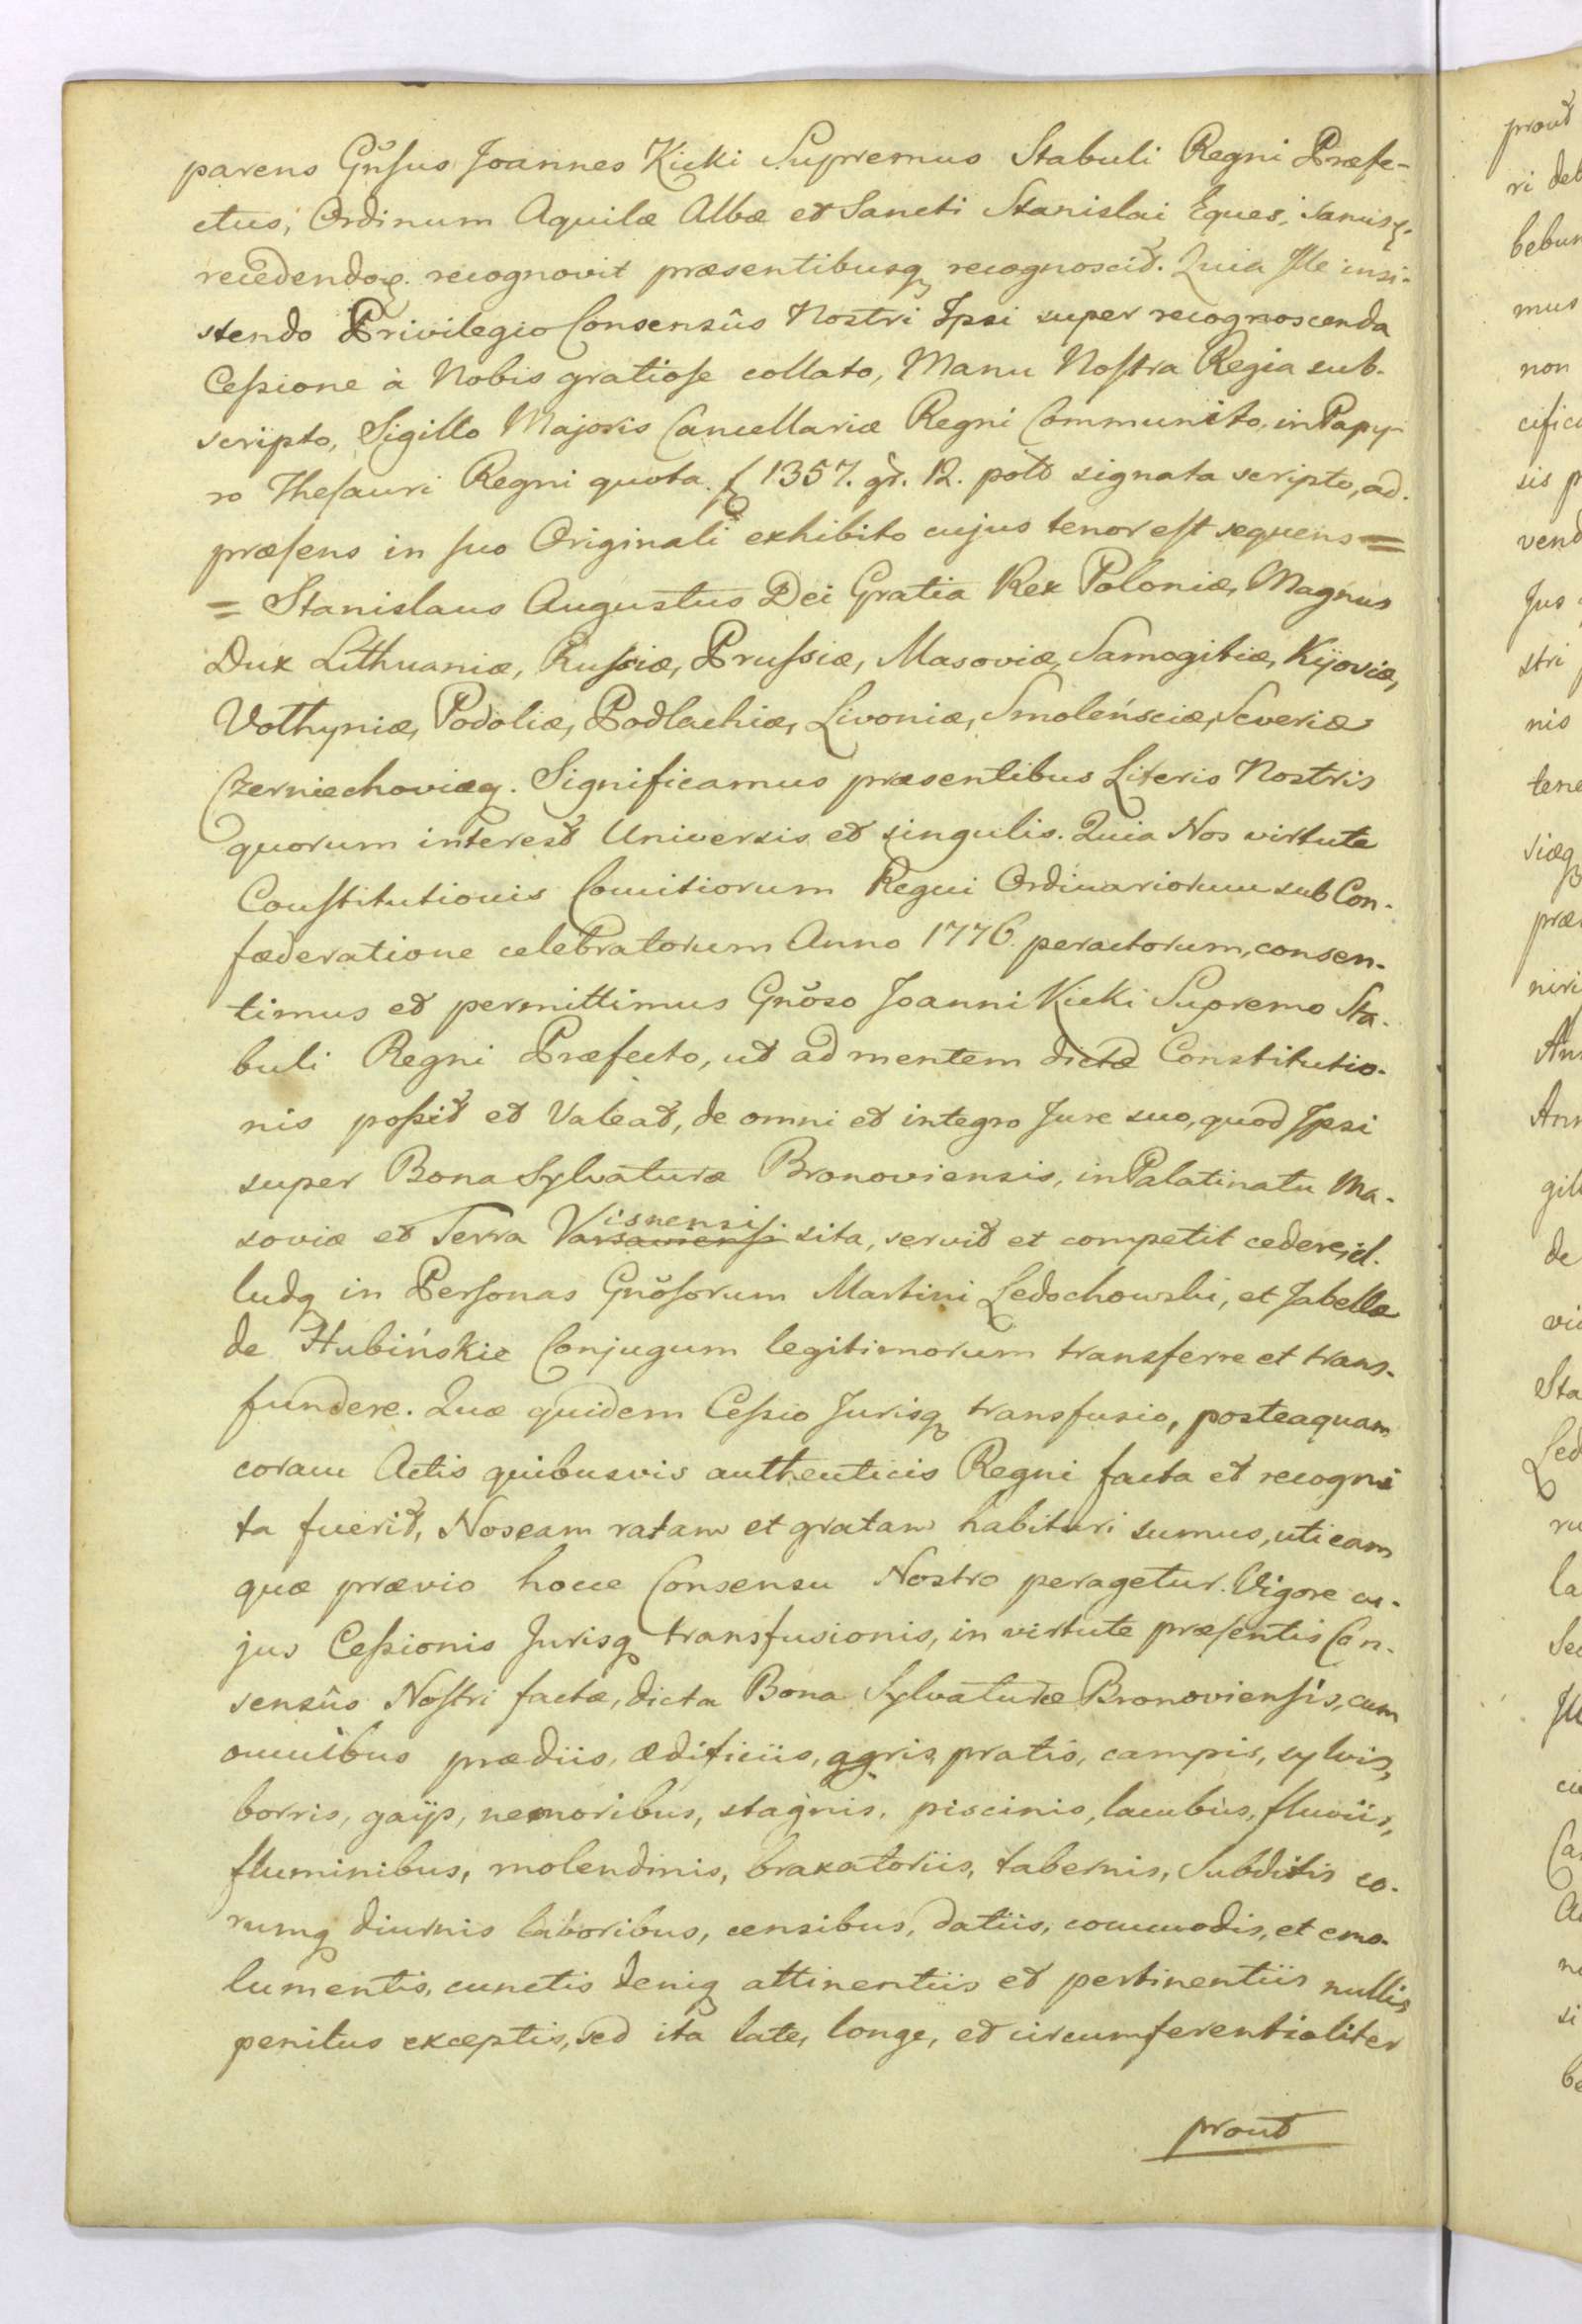 parens Gnŝus Joannes Kicki Supremus Stabuli Regni Præfe-
ctus, Ordinum Aquilæ Albæ et Sancti Stanislai Eques,
recedendoq. recognovit præsentibusq recognoscit. Quia Ille insi-
stendo Privilegio Consensûs Nostri Ipsi super recognoscenda
Cessione à Nobis gratiose collato, Manu Nostra Regia sub-
scripto, Sigillo Majoris Cancellariæ Regni Communito, in Papy-
ro Thesauri Regni quota f 1357. gr. 12. pold signata scripto, ad-
præsens in suo Originali exhibito cujus tenor est sequens =
= Stanislaus Augustus Dei Gratia Rex Poloniæ, Magnus
Dux Lithuaniæ, Russiæ, Prussiæ, Masoviæ, Samogitiæ, Kijoviæ,
Volhyniæ, Podoliæ, Podlachiæ, Livoniæ, Smoleńsciæ, Severiæ
Czerniechoviæq. Significamus præsentibus Literis Nostris
quorum interest Universis et singulis. Quia Nos virtute
Constitutionis Comitiorum Regni Ordinariorum sub Con-
fæderatione celebratorum Anno 1776. peractorum, consen-
timus et permittimus Gnõso Joanni Kicki Supremo Sta-
buli Regni Præfecto, ut ad mentem dictæ Constitutio-
nis possit et Valeat, de omni et integro Jure suo, quod Ipsi
super Bona Sylvaturæ Bronoviensis, in Palatinatu Ma-
soviæ et Terra Visnensi sita, servit et competit cedere, il-
ludq in Personas Gnõsorum Martini Ledochowski, et Jabellæ
de Hubińskie Conjugum legitimorum transferre et trans-
fundere. Quæ quidem Cessio Jurisq transfusio, posteaquam
coram Actis quibusvis authenticis Regni facta et recogni
ta fuerit, Nos eam ratam et gratam habituri sumus, uti eam
quæ prævio hocce Consensu Nostro peragetur. Vigore cu-
jus Cessionis Jurisq transfusionis, in virtute præsentis Con-
sensûs Nostri factæ, dicta Bona Sylvaturæ Bronoviensis, cum
omnibus prædiis, ædificiis, agris, pratis, campis, sylvis,
borris, gaijs, nemoribus, stagnis, piscinis, lacubus, fluviis,
fluminibus, molendinis, braxatoriis, tabernis, Subditis eo-
rumq diurnis laboribus, censibus, datiis, commodis, et emo-
lumentis, cunctis deniq attinentiis et pertinentiis nullis
penitus exceptis, sed ita late, longe, et circumferentialiter
prout